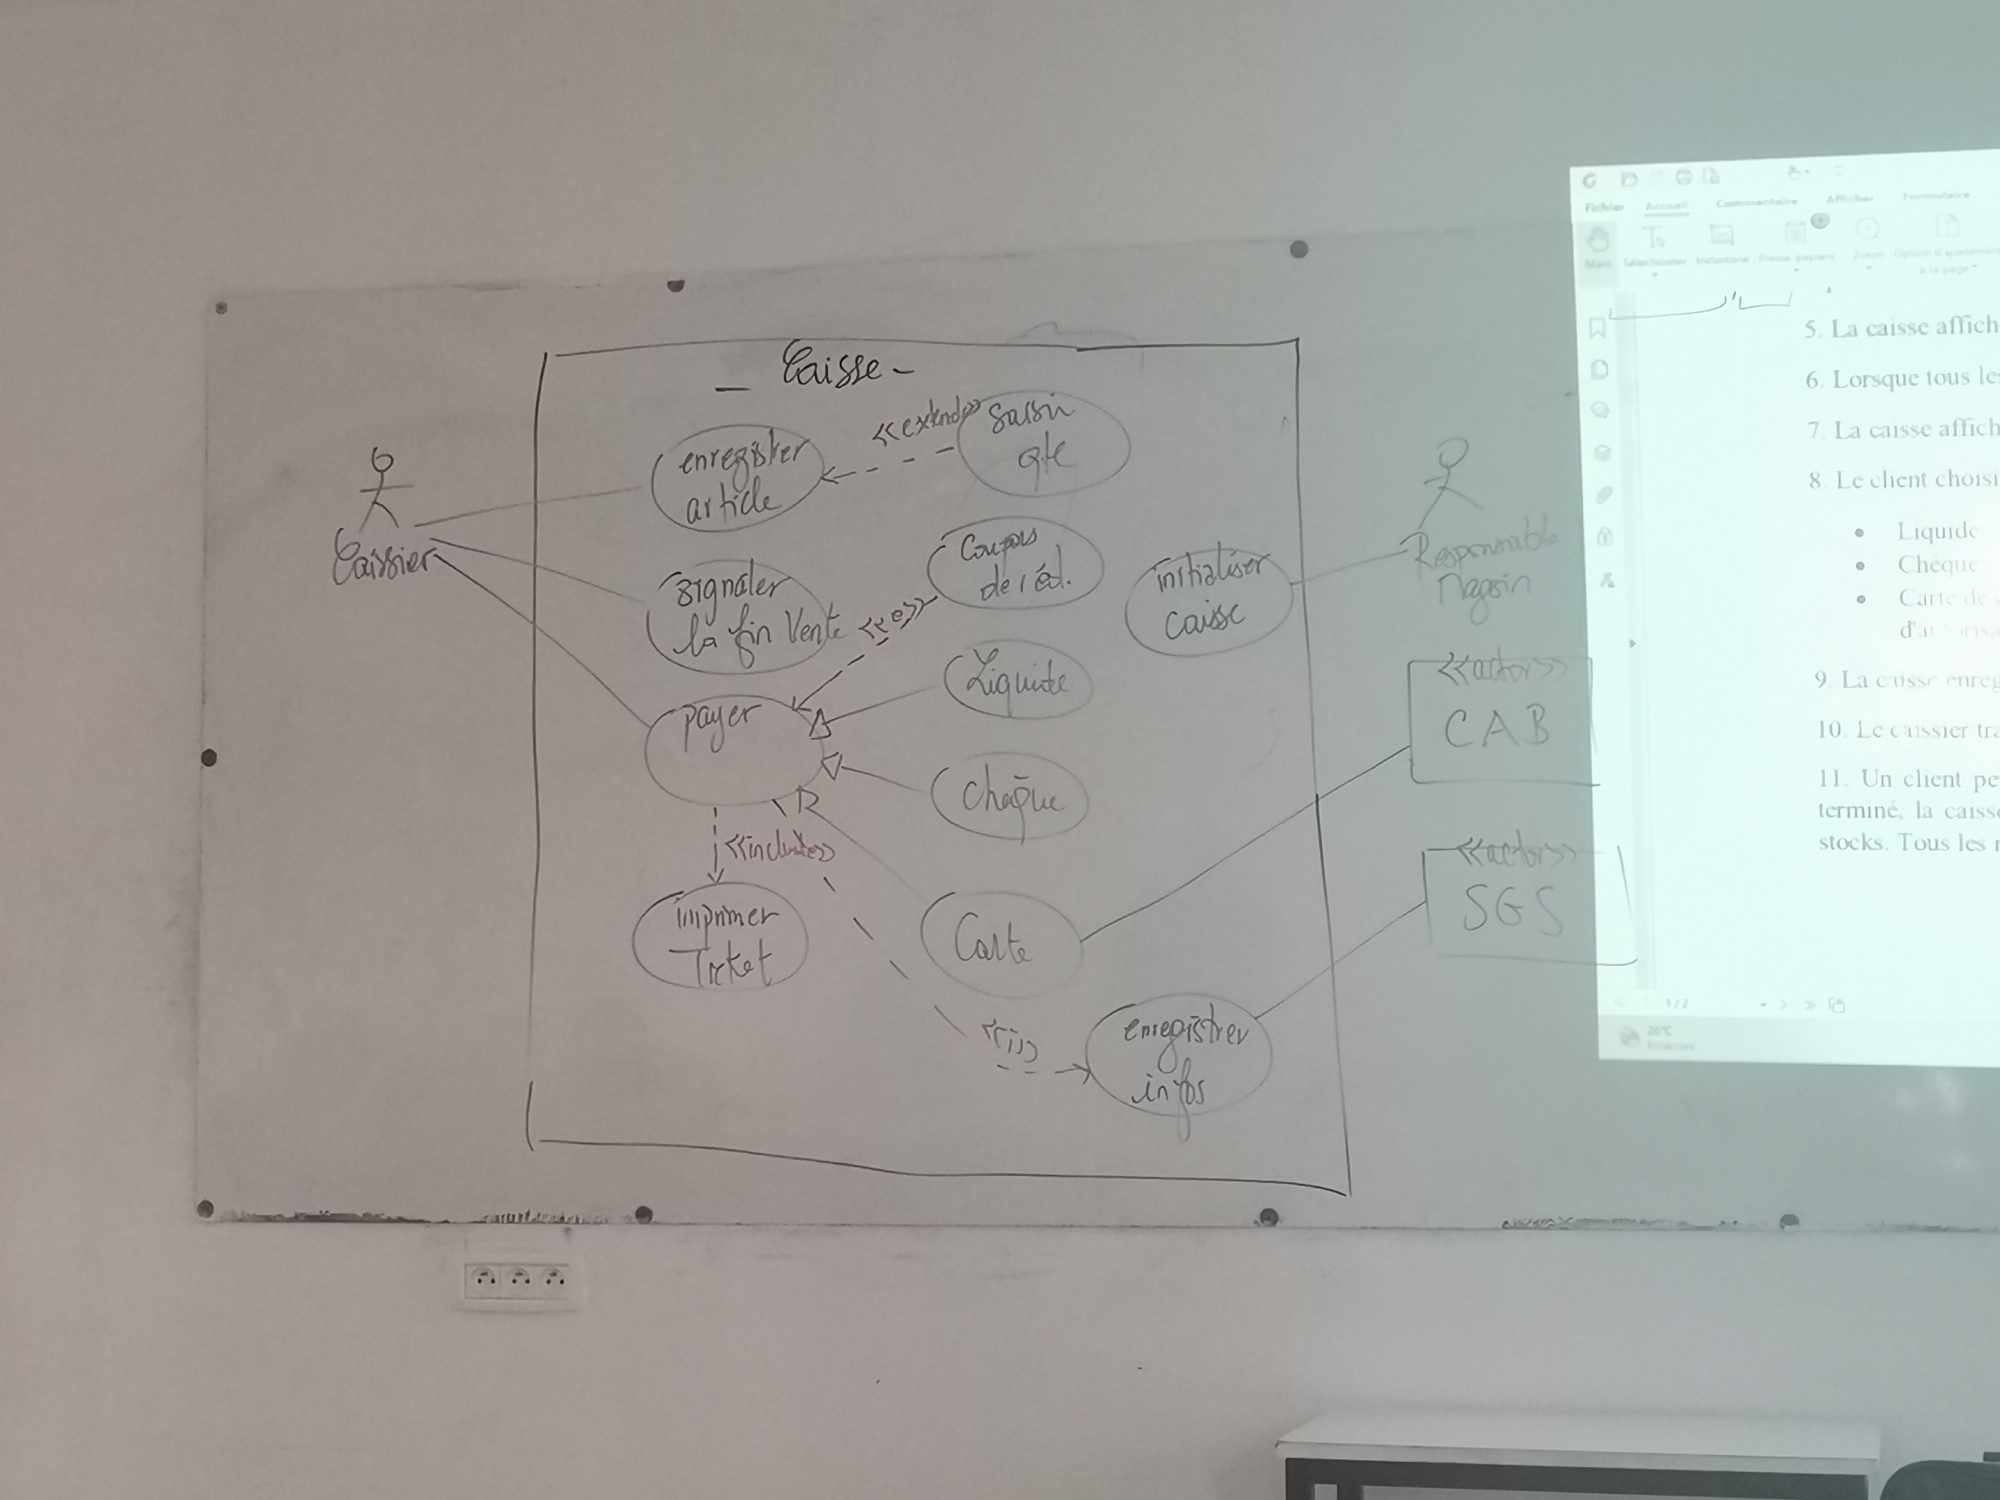 - Caisse -
Caissier
enregistrer
article
<<extend>>
Saisir
qte
signaler
la fin Vente
<<e>>
Coupons
de réd.
initialiser
caisse
Responsable
Magasin
payer
Liquide
Chèque
<<include>>
imprimer
Ticket
Carte
<<i>>
enregistrer
infos
<<actor>>
CAB
<<actor>>
SGS
Fichier Accueil Commentaire Afficher Formulaire
Main
à la page
5. La caisse affich
6. Lorsque tous les
7. La caisse affich
8. Le client choisi
• Liquide
• Chèque
• Carte de
9. La caisse enreg
10. Le caissier tra
11. Un client pe
terminé, la caisse
stocks. Tous les
1/2